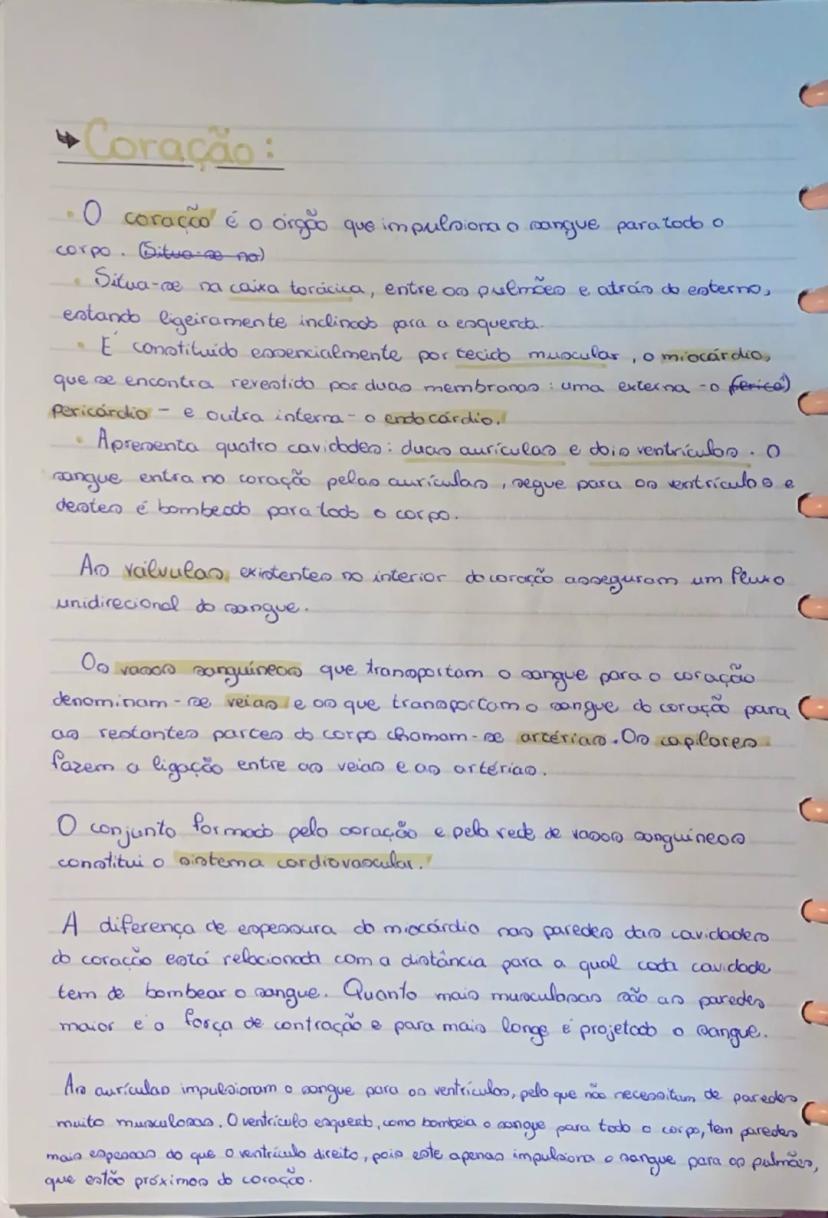 ↳ Coração:
• O coração é o órgão que impulsiona o sangue para todo o
corpo. (Situa-se na)
• Situa-se na caixa torácica, entre os pulmões e atrás do esterno,
estando ligeiramente inclinado para a esquerda.
• É constituído essencialmente por tecido muscular, o miocárdio,
que se encontra revestido por duas membranas: uma externa - o (ferica)
pericárdio - e outra interna - o endocárdio.
• Apresenta quatro cavidades: duas aurículas e dois ventrículos. O
sangue entra no coração pelas aurículas, segue para os ventrículos e
destes é bombeado para todo o corpo.
As válvulas existentes no interior do coração asseguram um fluxo
unidirecional do sangue.
Os vasos sanguíneos que transportam o sangue para o coração
denominam-se veias e os que transportam o sangue do coração para
as restantes partes do corpo chamam-se artérias. Os capilares
fazem a ligação entre as veias e as artérias.
O conjunto formado pelo coração e pela rede de vasos sanguíneos
constitui o sistema cardiovascular.
A diferença de espessura do miocárdio nas paredes das cavidades
do coração está relacionada com a distância para a qual cada cavidade
tem de bombear o sangue. Quanto mais musculosas são as paredes
maior é a força de contração e para mais longe é projetado o sangue.
As aurículas impulsionam o sangue para os ventrículos, pelo que não necessitam de paredes
muito musculosas. O ventrículo esquerdo, como bombeia o sangue para todo o corpo, tem paredes
mais espessas do que o ventrículo direito, pois este apenas impulsiona o sangue para os pulmões,
que estão próximos do coração.